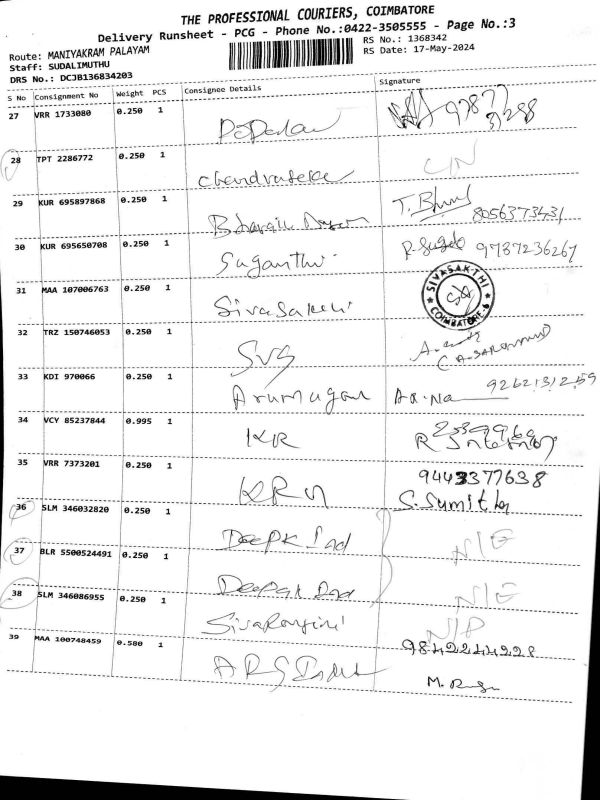 THE PROFESSIONAL COURIERS, COIMBATORE
Delivery Runsheet - PCG - Phone No.:0422-3505555 - Page No.:3
Route: MANIYAKRAM PALAYAM
RS No.: 1368342
Staff: SUDALIMUTHU
RS Date: 17-May-2024
DRS No.: DCJB136834203
S No Consignment No Weight PCS Consignee Details Signature
27 VRR 1733080 0.250 1
28 TPT 2286772 0.250 1 Chandrasekar
29 KUR 695897868 0.250 1 T. 8056373431
30 KUR 695650708 0.250 1 Suganthi 9787236267
31 MAA 107006763 0.250 1 Sivasakthi SIVASAKTHI COIMBATORE-6
32 TRZ 150746053 0.250 1 SVS
33 KDI 970066 0.250 1 Arumugam
34 VCY 85237844 0.995 1 KR
35 VRR 7373201 0.250 1 KRN 9443377638
S. Sumitha
36 SLM 346032820 0.250 1 Deepk Ind
37 BLR 5500524491 0.250 1 Deepak
38 SLM 346086955 0.250 1 Sivaranjini
39 MAA 100748459 0.580 1 ARS 9842244228
M.